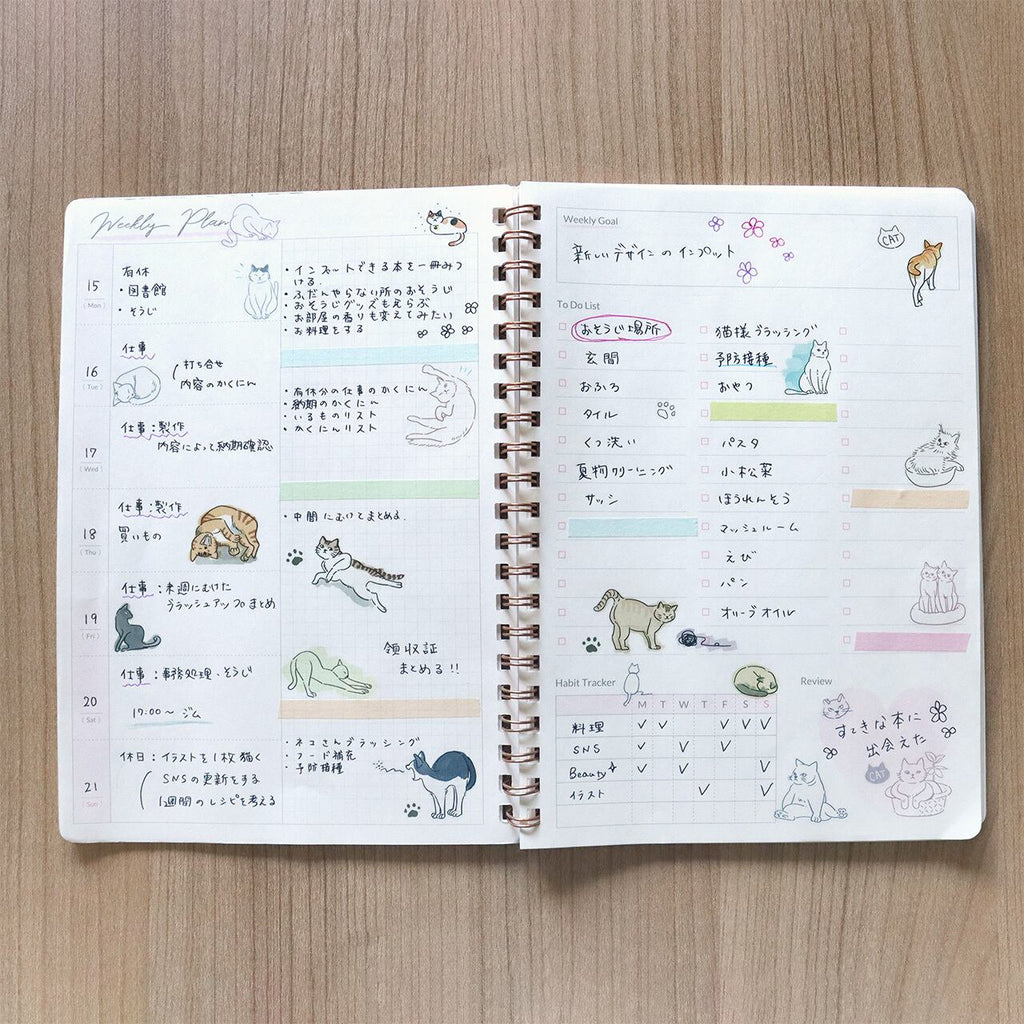 Weekly Plan
15
Mon
有休
・図書館
・そうじ
・インプットできる本を一冊みつ
ける.
・ふだんやらない所のおそうじ
・おそうじグッズもえらぶ
・お部屋の香りも変えてみたい
・お料理をする
16
Tue
仕事
打ち合せ
内容のかくにん
・有休分の仕事のかくにん
・納期のかくにん
・いるものリスト
・かくにんリスト
17
Wed
仕事:製作
内容によって納期確認
18
Thu
仕事:製作
買いもの
・中間にむけてまとめる.
19
Fri
仕事:来週にむけた
ブラッシュアップのまとめ
領収証
まとめる!!
20
Sat
仕事:事務処理、そうじ
17:00〜 ジム
21
Sun
休日:イラストを1枚描く
SNSの更新をする
1週間のレシピを考える
・ネコさんブラッシング
・フード補充
・予防接種
Weekly Goal
新しいデザインのインプット
CAT
To Do List
おそうじ場所
玄関
おふろ
タイル
くつ洗い
夏物クリーニング
サッシ
猫様ブラッシング
予防接種
おやつ
パスタ
小松菜
ほうれんそう
マッシュルーム
えび
パン
オリーブオイル
Habit Tracker
M T W T F S S
料理 ✓ ✓ ✓ ✓ ✓
SNS ✓ ✓ ✓
Beauty ✓ ✓ ✓
イラスト ✓ ✓
Review
すてきな本に
出会えた
CAT